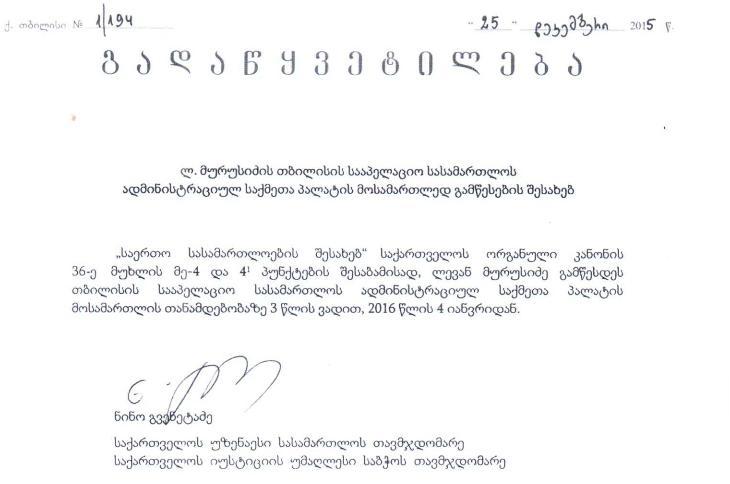 ქ. თბილისი № 1/194 " 25 " დეკემბერი 2015 წ.
გადაწყვეტილება
ლ. მურუსიძის თბილისის სააპელაციო სასამართლოს
ადმინისტრაციულ საქმეთა პალატის მოსამართლედ გამწესების შესახებ
„საერთო სასამართლოების შესახებ“ საქართველოს ორგანული კანონის
36-ე მუხლის მე-4 და 4¹ პუნქტების შესაბამისად, ლევან მურუსიძე გამწესდეს
თბილისის სააპელაციო სასამართლოს ადმინისტრაციულ საქმეთა პალატის
მოსამართლის თანამდებობაზე 3 წლის ვადით, 2016 წლის 4 იანვრიდან.
ნინო გვენეტაძე
საქართველოს უზენაესი სასამართლოს თავმჯდომარე
საქართველოს იუსტიციის უმაღლესი საბჭოს თავმჯდომარე